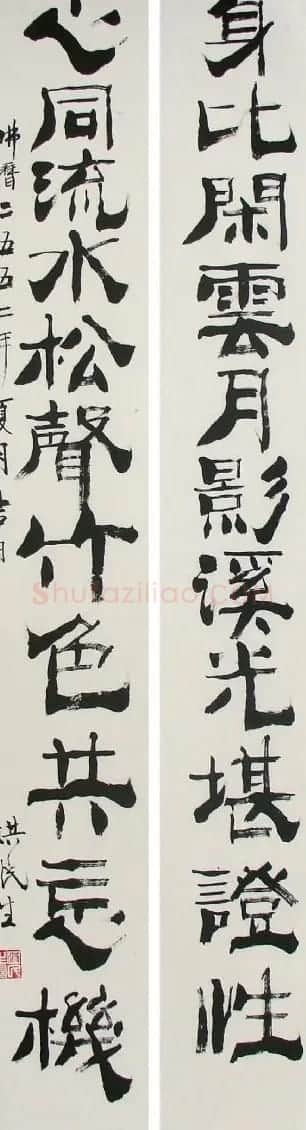 身比閑雲月影溪光堪證性
心同流水松聲竹色共忘機
佛曆二五五二年夏月吉日
洪民生
Shufaziliao.com